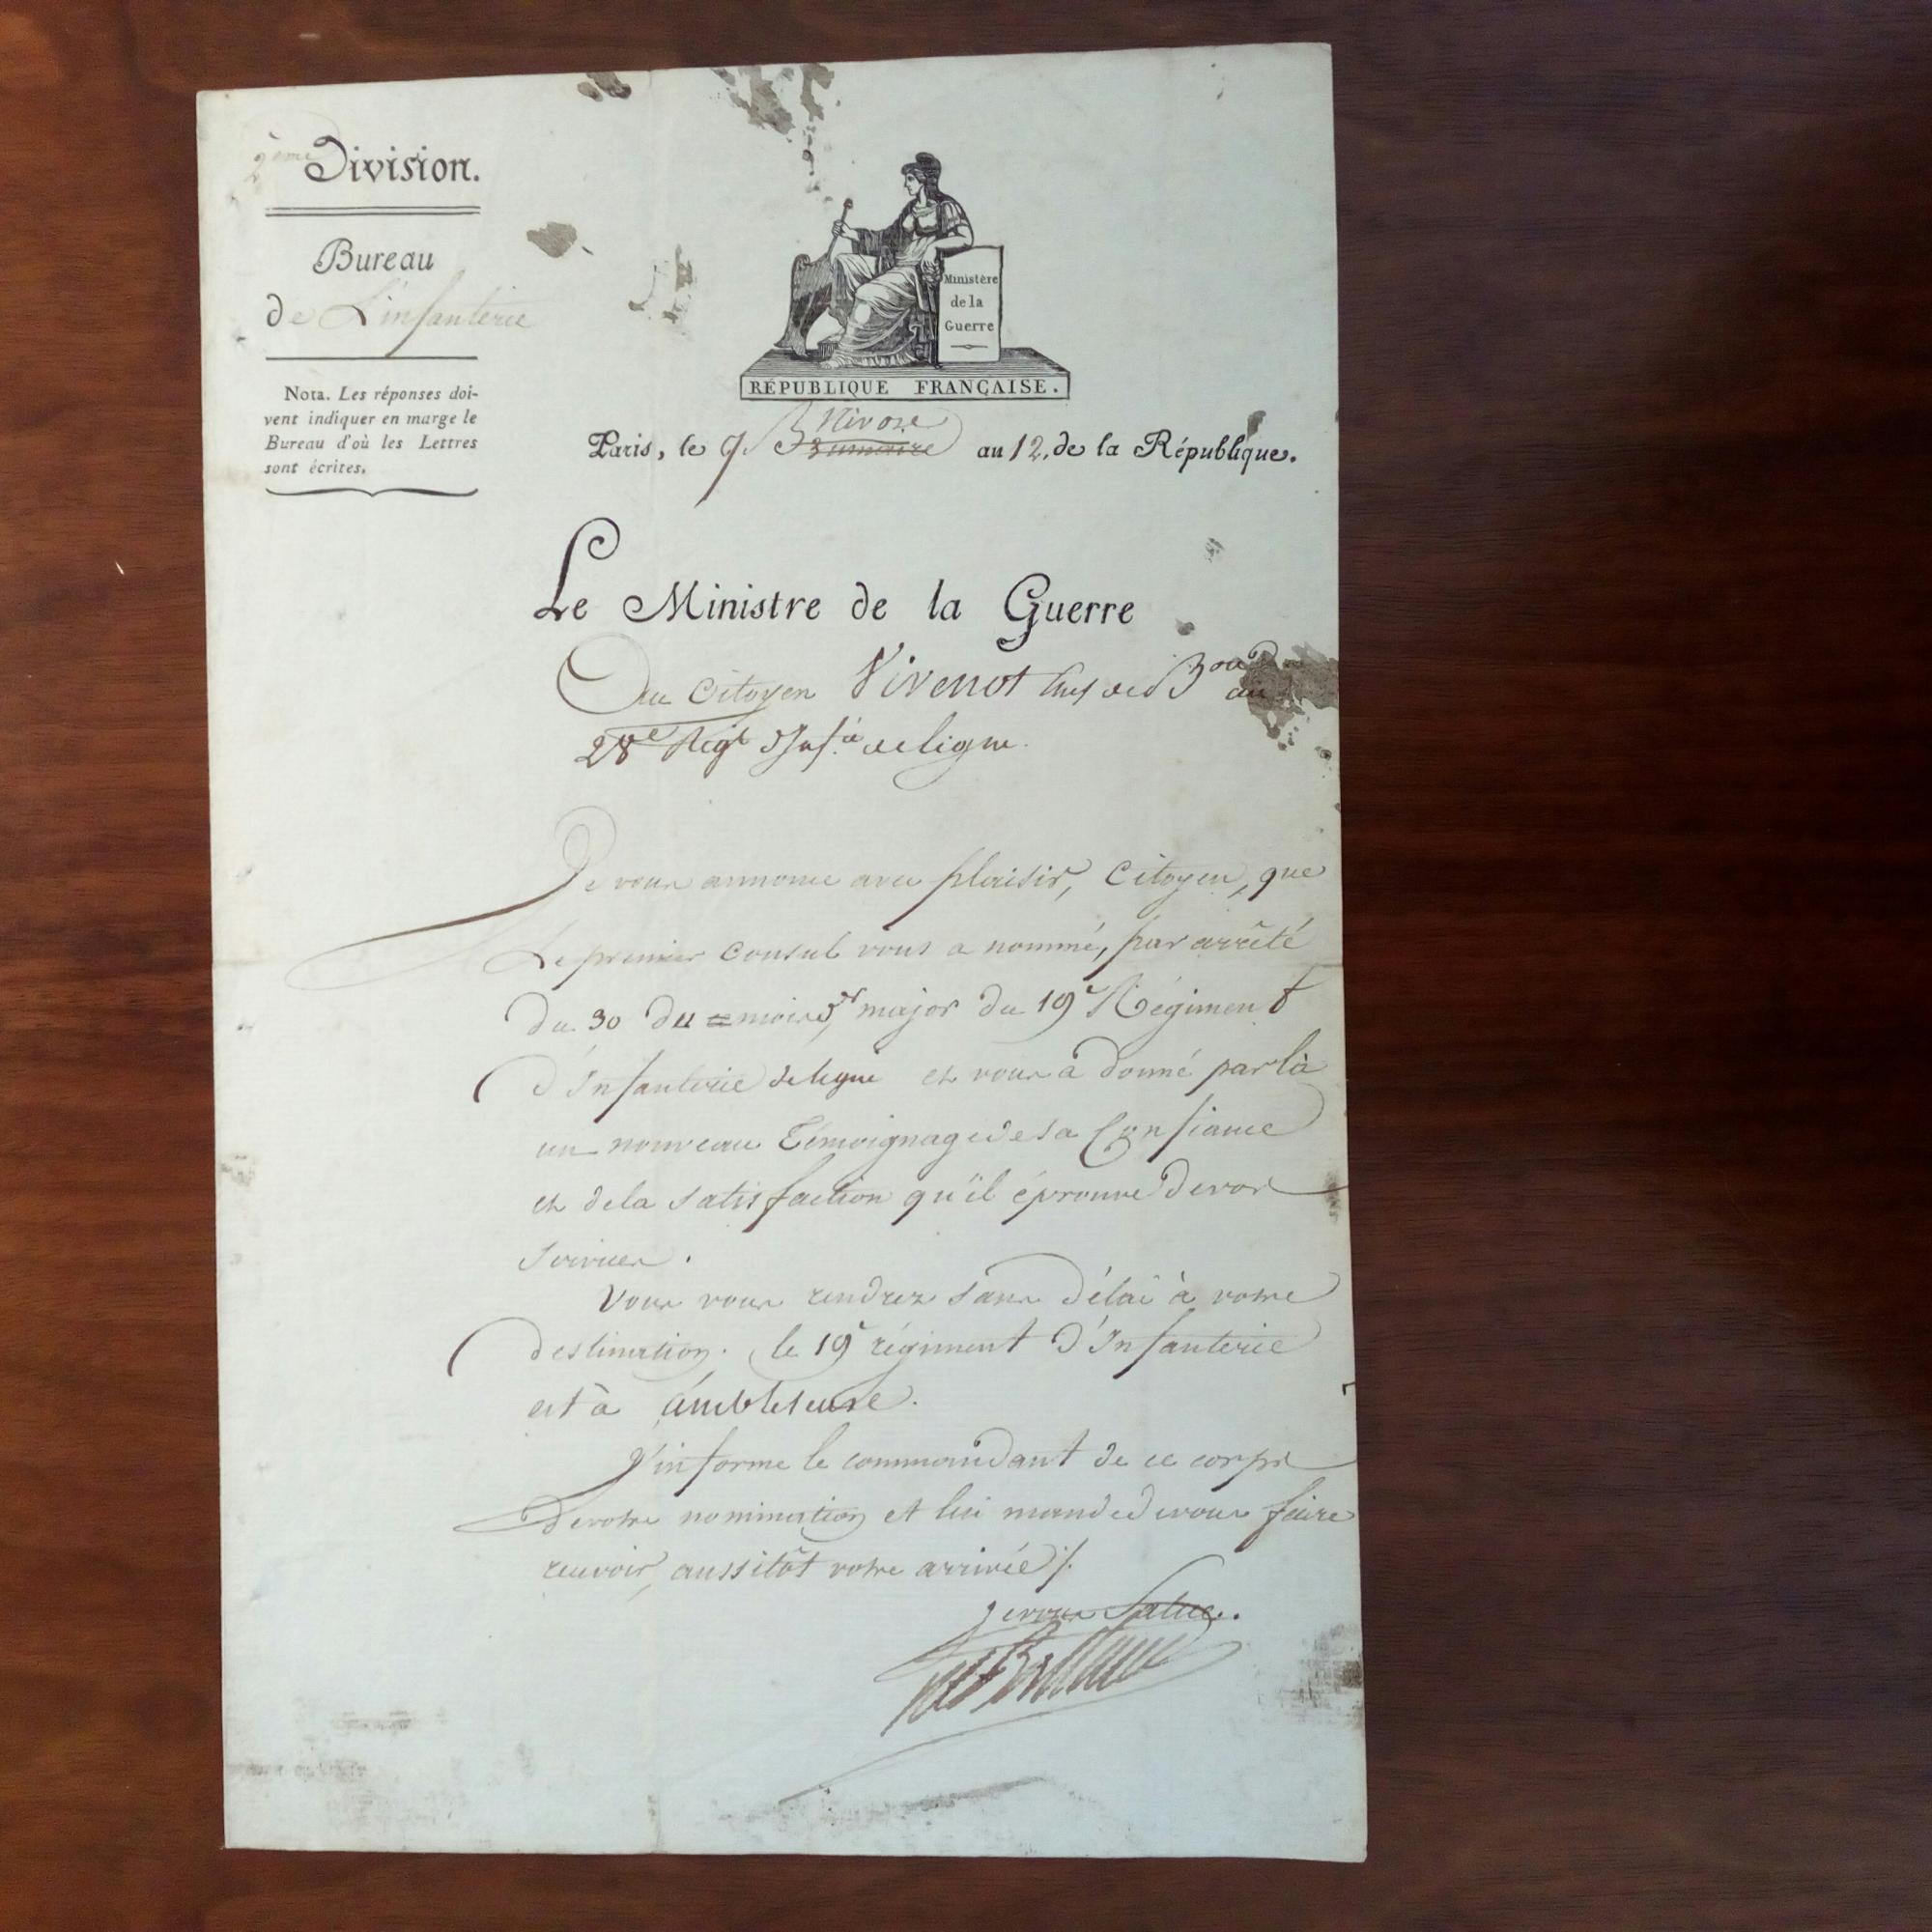 2ème Division.
Bureau
de L'infanterie
Nota. Les réponses doi-
vent indiquer en marge le
Bureau d'où les Lettres
sont écrites.
Ministère
de la
Guerre
RÉPUBLIQUE FRANÇAISE.
Nivose
Paris, le 9. Brumaire an 12, de la République.
Le Ministre de la Guerre
Au Citoyen Vivenot Chef de Bon au
28e Régt d'Infie de ligne.
Je vous annonce avec plaisir, Citoyen, que
Le premier Consul vous a nommé, par arrêté
du 30 major du 19e Régiment
d'Infanterie de ligne et vous a donné par là
un nouveau Témoignage de sa Confiance
et de la satisfaction qu'il éprouve de vos
services.
Vous vous rendrez sans délai à votre
destination. le 19e régiment d'Infanterie
est à ambleteuse.
J'informe le commandant de ce corps
de votre nomination et lui mande de vous faire
recevoir, aussitôt votre arrivée /.
je vous Salue.